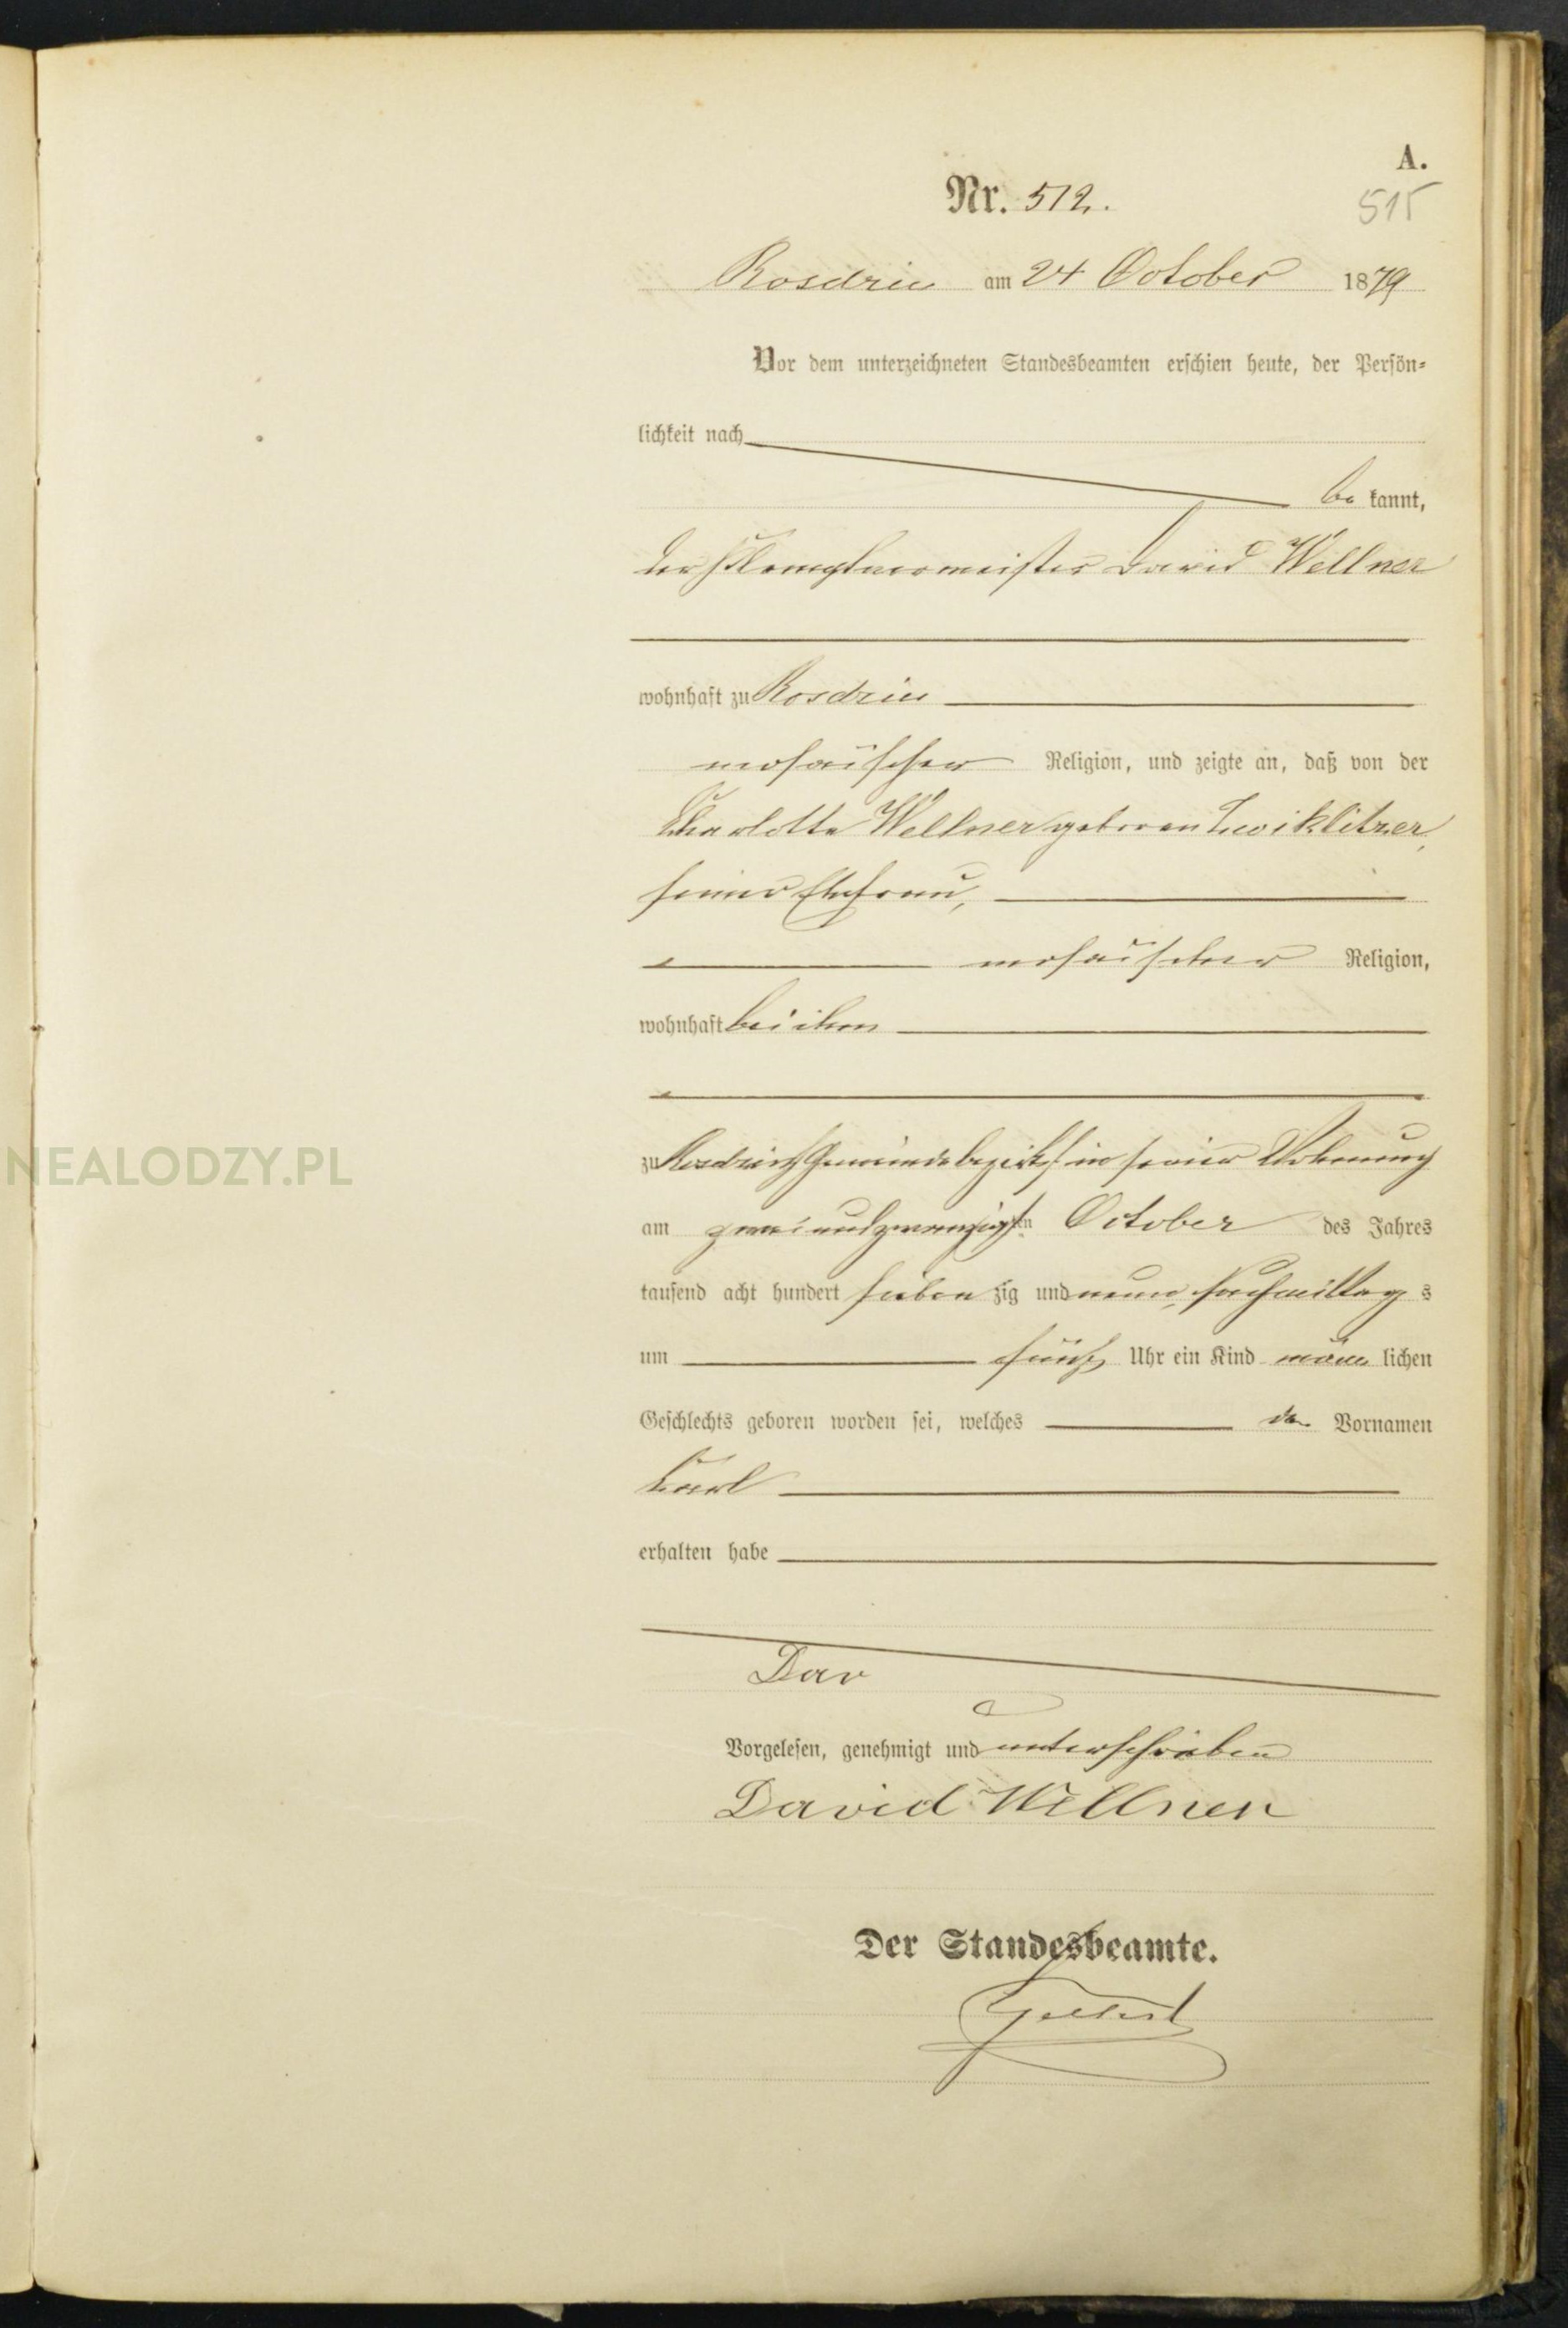 A.
Nr. 512.
515
Rosdzin am 24 October 1879
Vor dem unterzeichneten Standesbeamten erschien heute, der Persön-
lichkeit nach
be kannt,
der Klemptnermeister David Wellner
wohnhaft zu Rosdzin
mosaischer Religion, und zeigte an, daß von der
Charlotte Wellner geboren Zwiklitzer,
seiner Ehefrau,
mosaischer Religion,
wohnhaft bei ihm
zu Rosdzin Gemeindebezirk in seiner Wohnung
am zweiundzwanzigsten October des Jahres
tausend acht hundert sieben zig und neun, Nachmittag s
um fünf Uhr ein Kind männ lichen
Geschlechts geboren worden sei, welches den Vornamen
Carl
erhalten habe
Dav
Vorgelesen, genehmigt und unterschrieben
David Wellner
Der Standesbeamte.
NEALODZY.PL